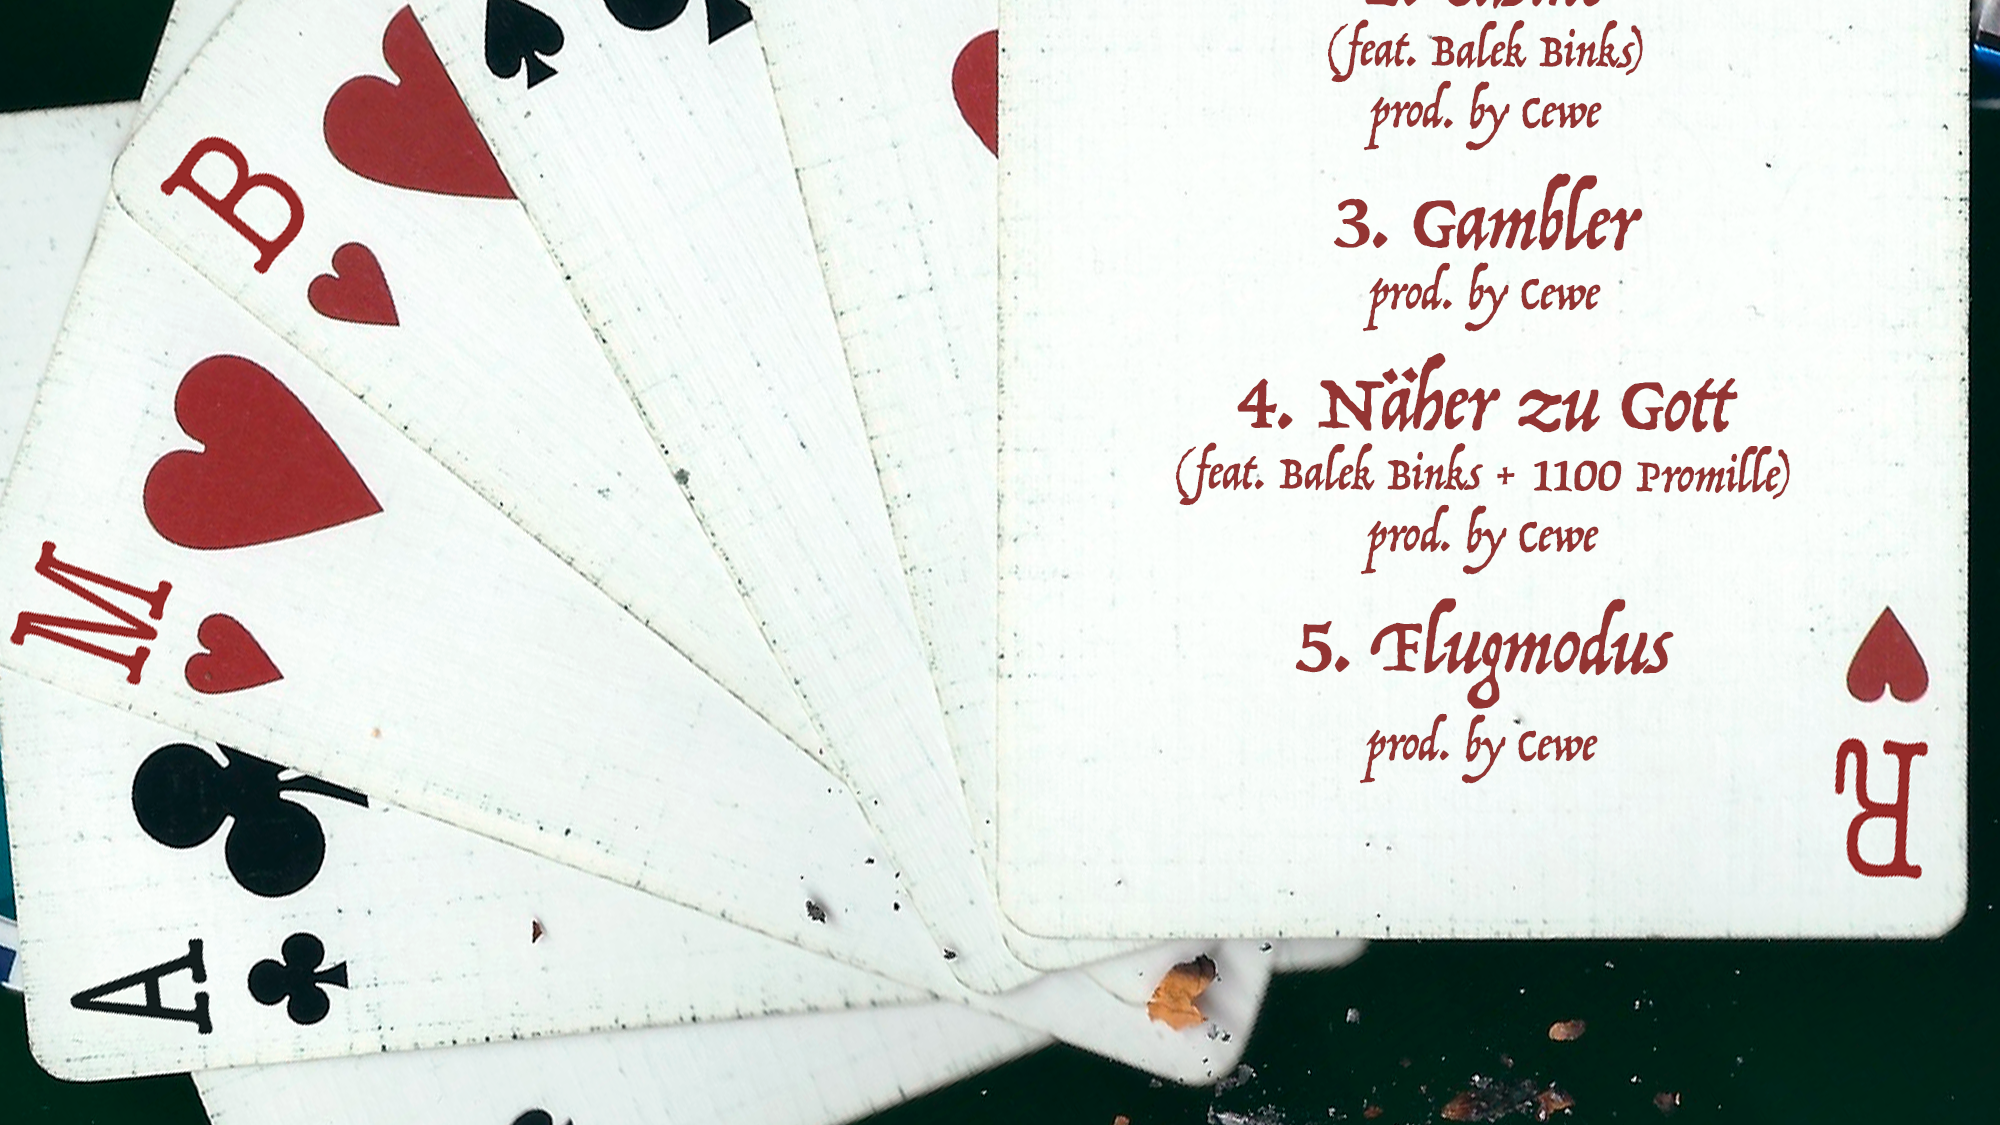 (feat. Balek Binks)
prod. by Cewe
3. Gambler
prod. by Cewe
4. Näher zu Gott
(feat. Balek Binks + 1100 Promille)
prod. by Cewe
5. Flugmodus
prod. by Cewe
B
M
A
R